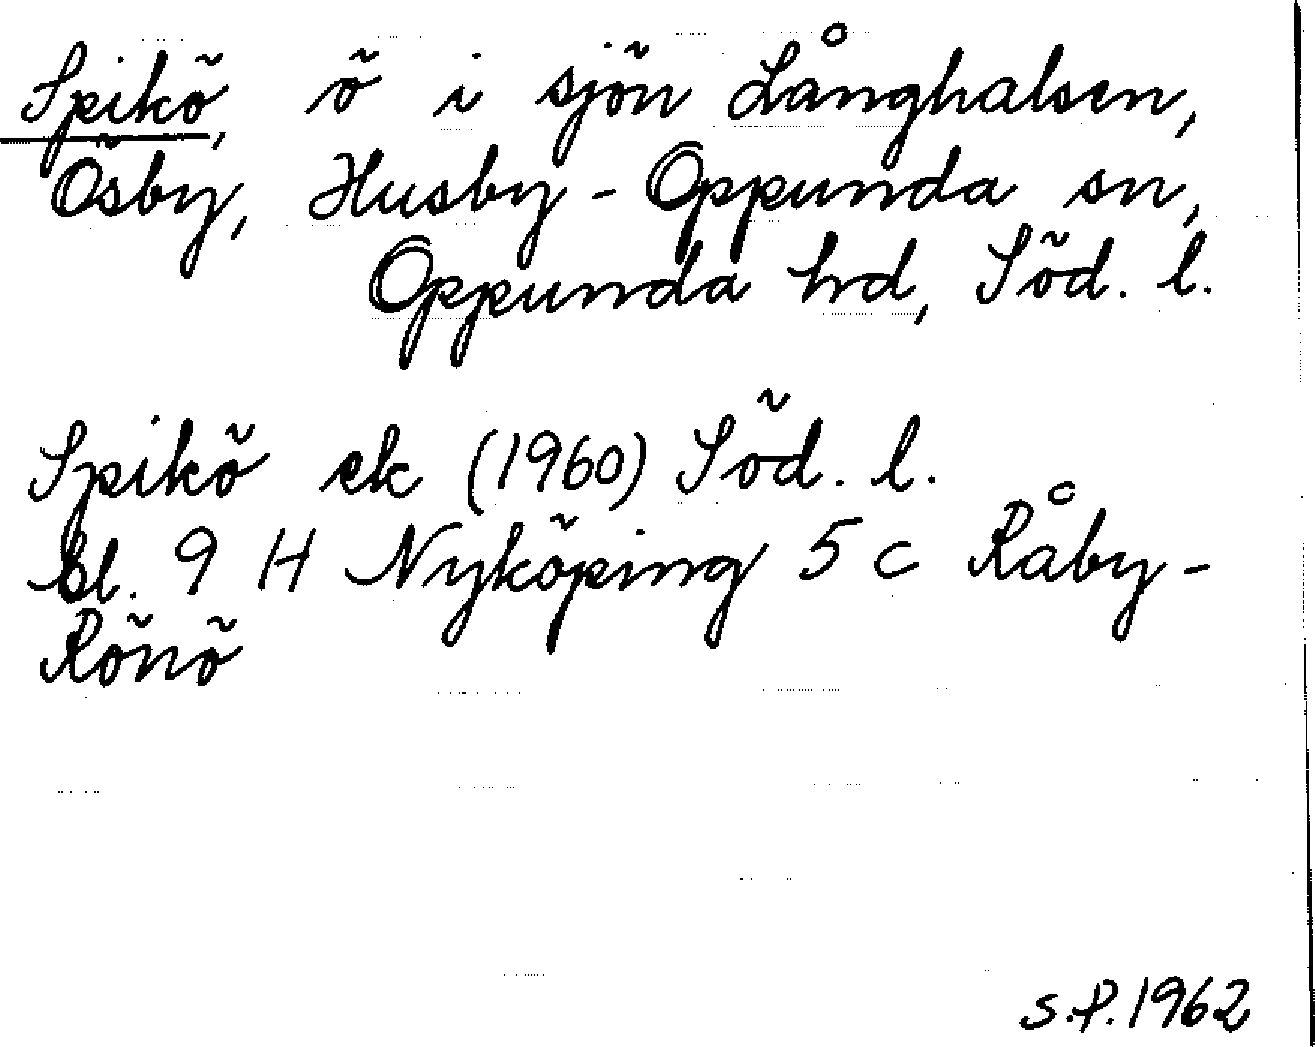 Spikö, ö i sjön Långhalsen,
Ösby, Husby-Oppunda sn,
Oppunda hd, Söd. l.
Spikö ek (1960) Söd. l.
Bl. 9 H Nyköping 5 c Råby-
Rönö
S.P. 1962